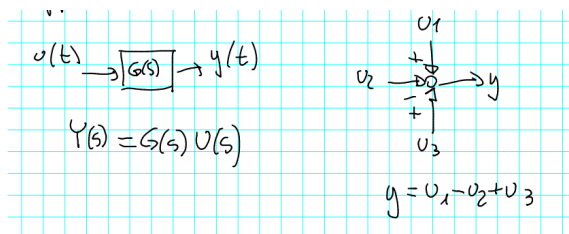 u(t) G(s) y(t)
Y(s) = G(s) U(s)
U1
+
U2 y
-
+
U3
y = U1 - U2 + U3